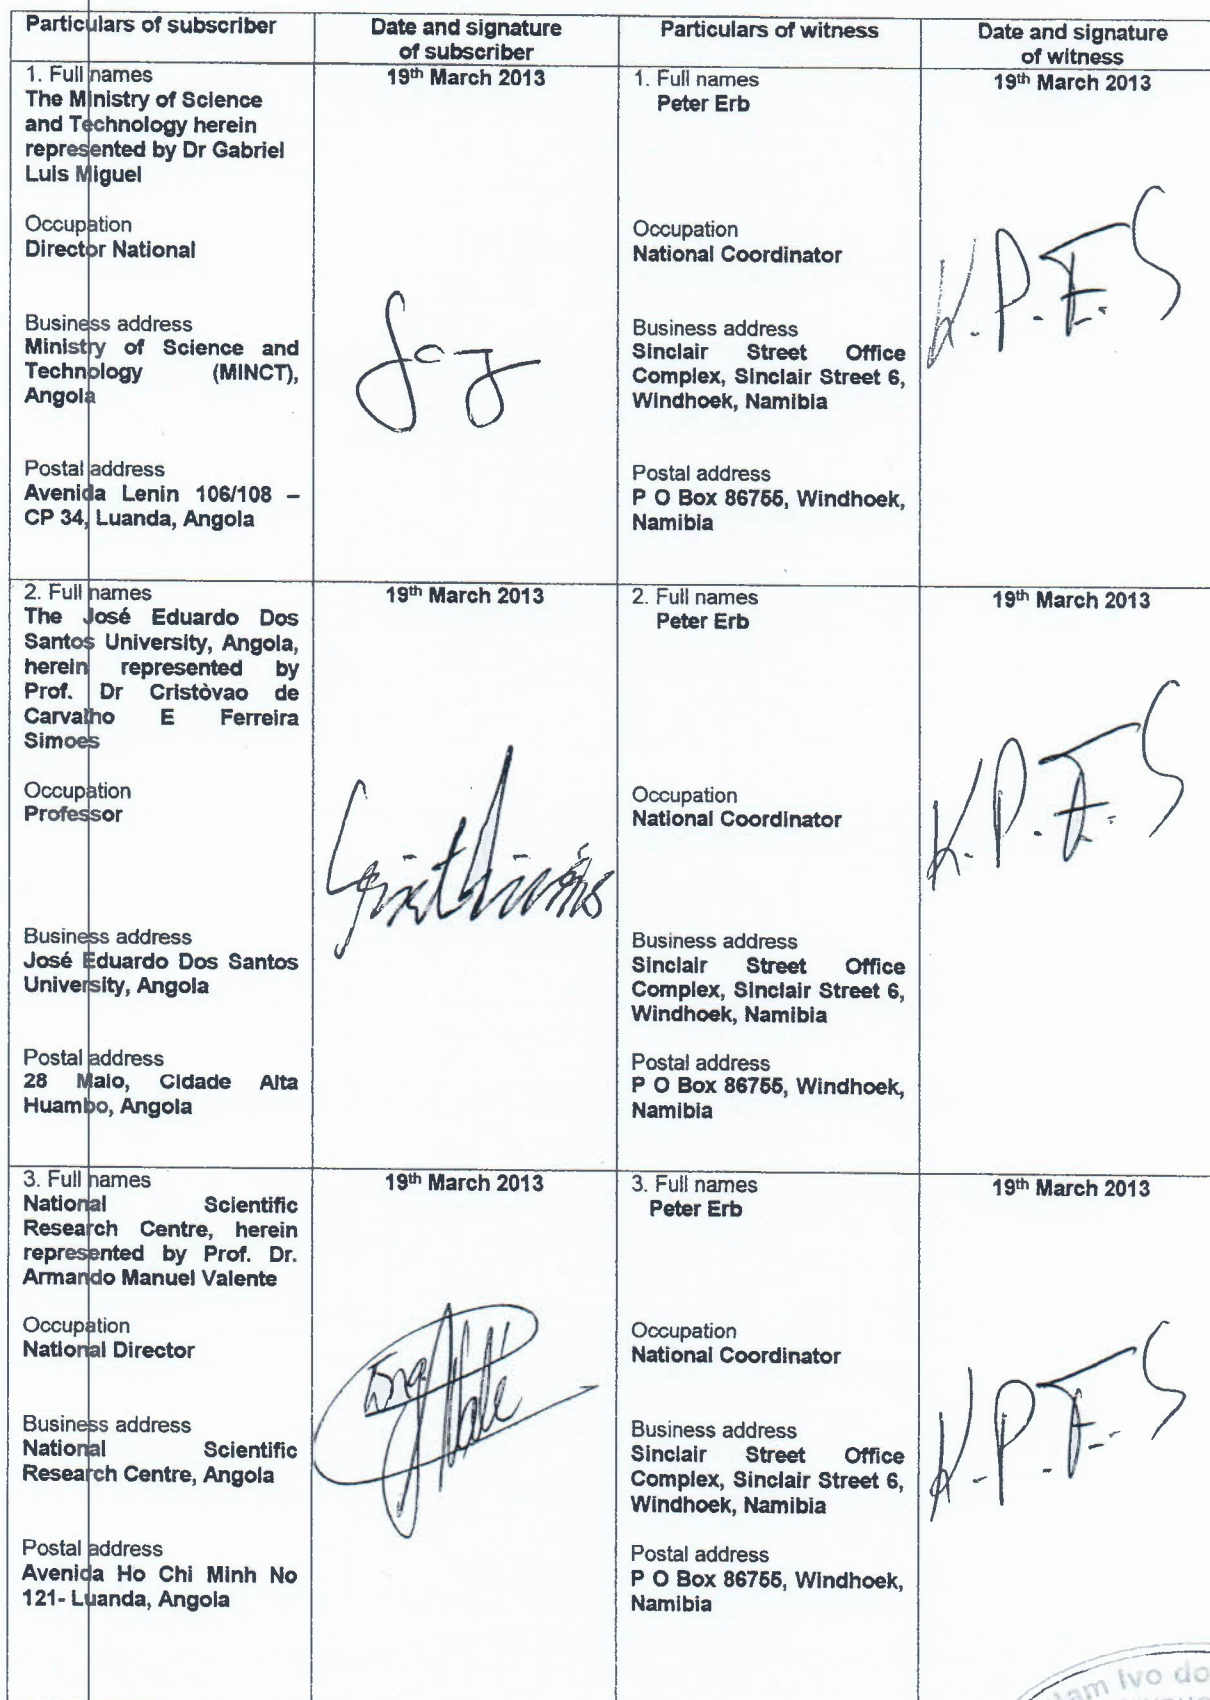 Particulars of subscriber
Date and signature
of subscriber
Particulars of witness
Date and signature
of witness
1. Full names
The Ministry of Science
and Technology herein
represented by Dr Gabriel
Luis Miguel
Occupation
Director National
Business address
Ministry of Science and
Technology (MINCT),
Angola
Postal address
Avenida Lenin 106/108 –
CP 34, Luanda, Angola
19th March 2013
1. Full names
Peter Erb
Occupation
National Coordinator
Business address
Sinclair Street Office
Complex, Sinclair Street 6,
Windhoek, Namibia
Postal address
P O Box 86755, Windhoek,
Namibia
19th March 2013
K.P.E.S
2. Full names
The José Eduardo Dos
Santos University, Angola,
herein represented by
Prof. Dr Cristòvao de
Carvalho E Ferreira
Simoes
Occupation
Professor
Business address
José Eduardo Dos Santos
University, Angola
Postal address
28 Maio, Cidade Alta
Huambo, Angola
19th March 2013
2. Full names
Peter Erb
Occupation
National Coordinator
Business address
Sinclair Street Office
Complex, Sinclair Street 6,
Windhoek, Namibia
Postal address
P O Box 86755, Windhoek,
Namibia
19th March 2013
K.P.E.S
3. Full names
National Scientific
Research Centre, herein
represented by Prof. Dr.
Armando Manuel Valente
Occupation
National Director
Business address
National Scientific
Research Centre, Angola
Postal address
Avenida Ho Chi Minh No
121- Luanda, Angola
19th March 2013
3. Full names
Peter Erb
Occupation
National Coordinator
Business address
Sinclair Street Office
Complex, Sinclair Street 6,
Windhoek, Namibia
Postal address
P O Box 86755, Windhoek,
Namibia
19th March 2013
K.P.E.S
Ivo do